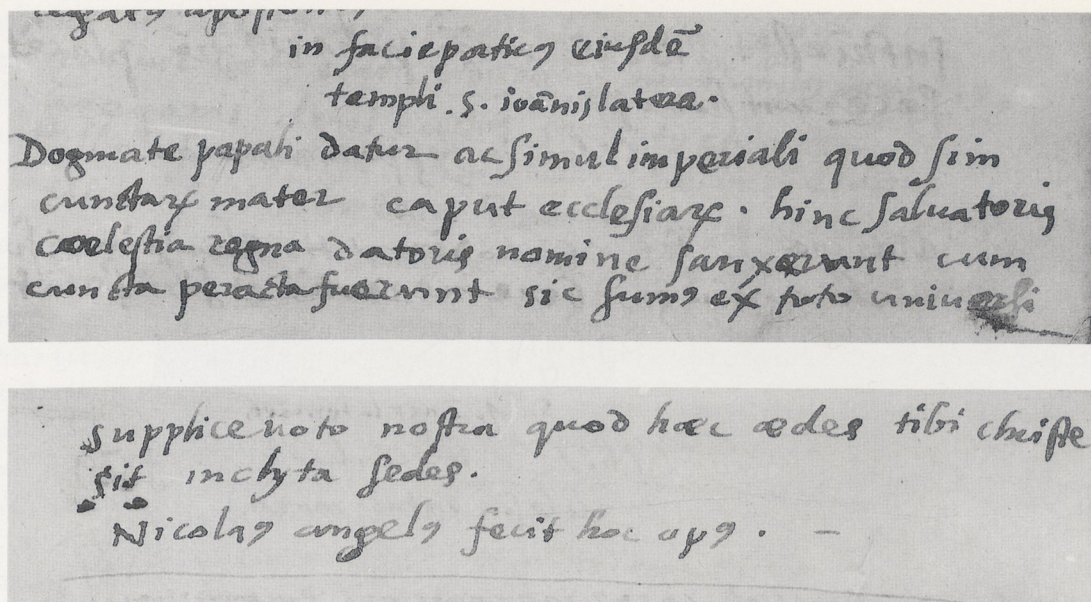 in facie poticꝰ eiusdē
templi . s. ioānis latera.
Dogmate papali datur ac simul imperiali quod sim
cunctaꝝ mater caput ecclesiaꝝ . hinc salvatoris
cœlestia regna datoris nomine sanxerunt cum
cuncta peracta fuerunt sic sumꝰ ex toto
supplice uoto nostra quod hæc ædes tibi christe
sit inclyta sedes.
Nicolaꝰ angelꝰ fecit hoc opꝰ . —